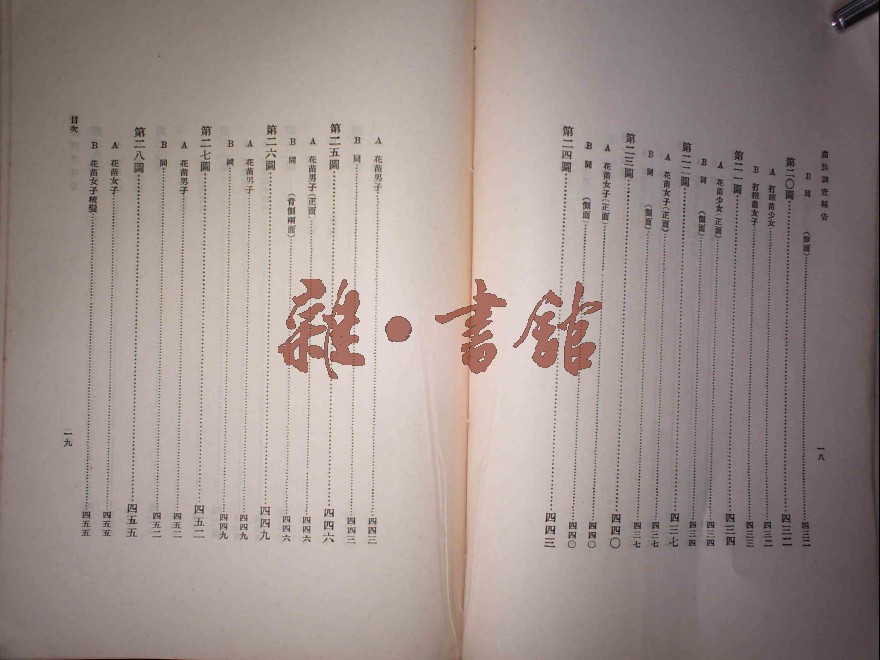 苗族調查報告
一八
B 同 (側面)……四三二
第二〇圖……四三二
A 打鐵苗少女……四三二
B 打鐵苗女子……四三三
第二一圖……四三四
A 花苗少女(正面)……四三四
B 同 (側面)……四三四
第二二圖……四三七
A 花苗女子(正面)……四三七
B 同 (側面)……四三七
第二三圖……四四〇
A 花苗女子(正面)……四四〇
B 同 (側面)……四四〇
第二四圖……四四三
A 花苗男子……四四三
B 同……四四三
第二五圖……四四六
A 花苗男子(正面)……四四六
B 同 (背側兩面)……四四六
第二六圖……四四九
A 花苗男子……四四九
B 同……四四九
第二七圖……四五二
A 花苗男子……四五二
B 同……四五二
第二八圖……四五五
A 花苗女子……四五五
B 花苗女子梳髮……四五五
目次
一九
雜·書館